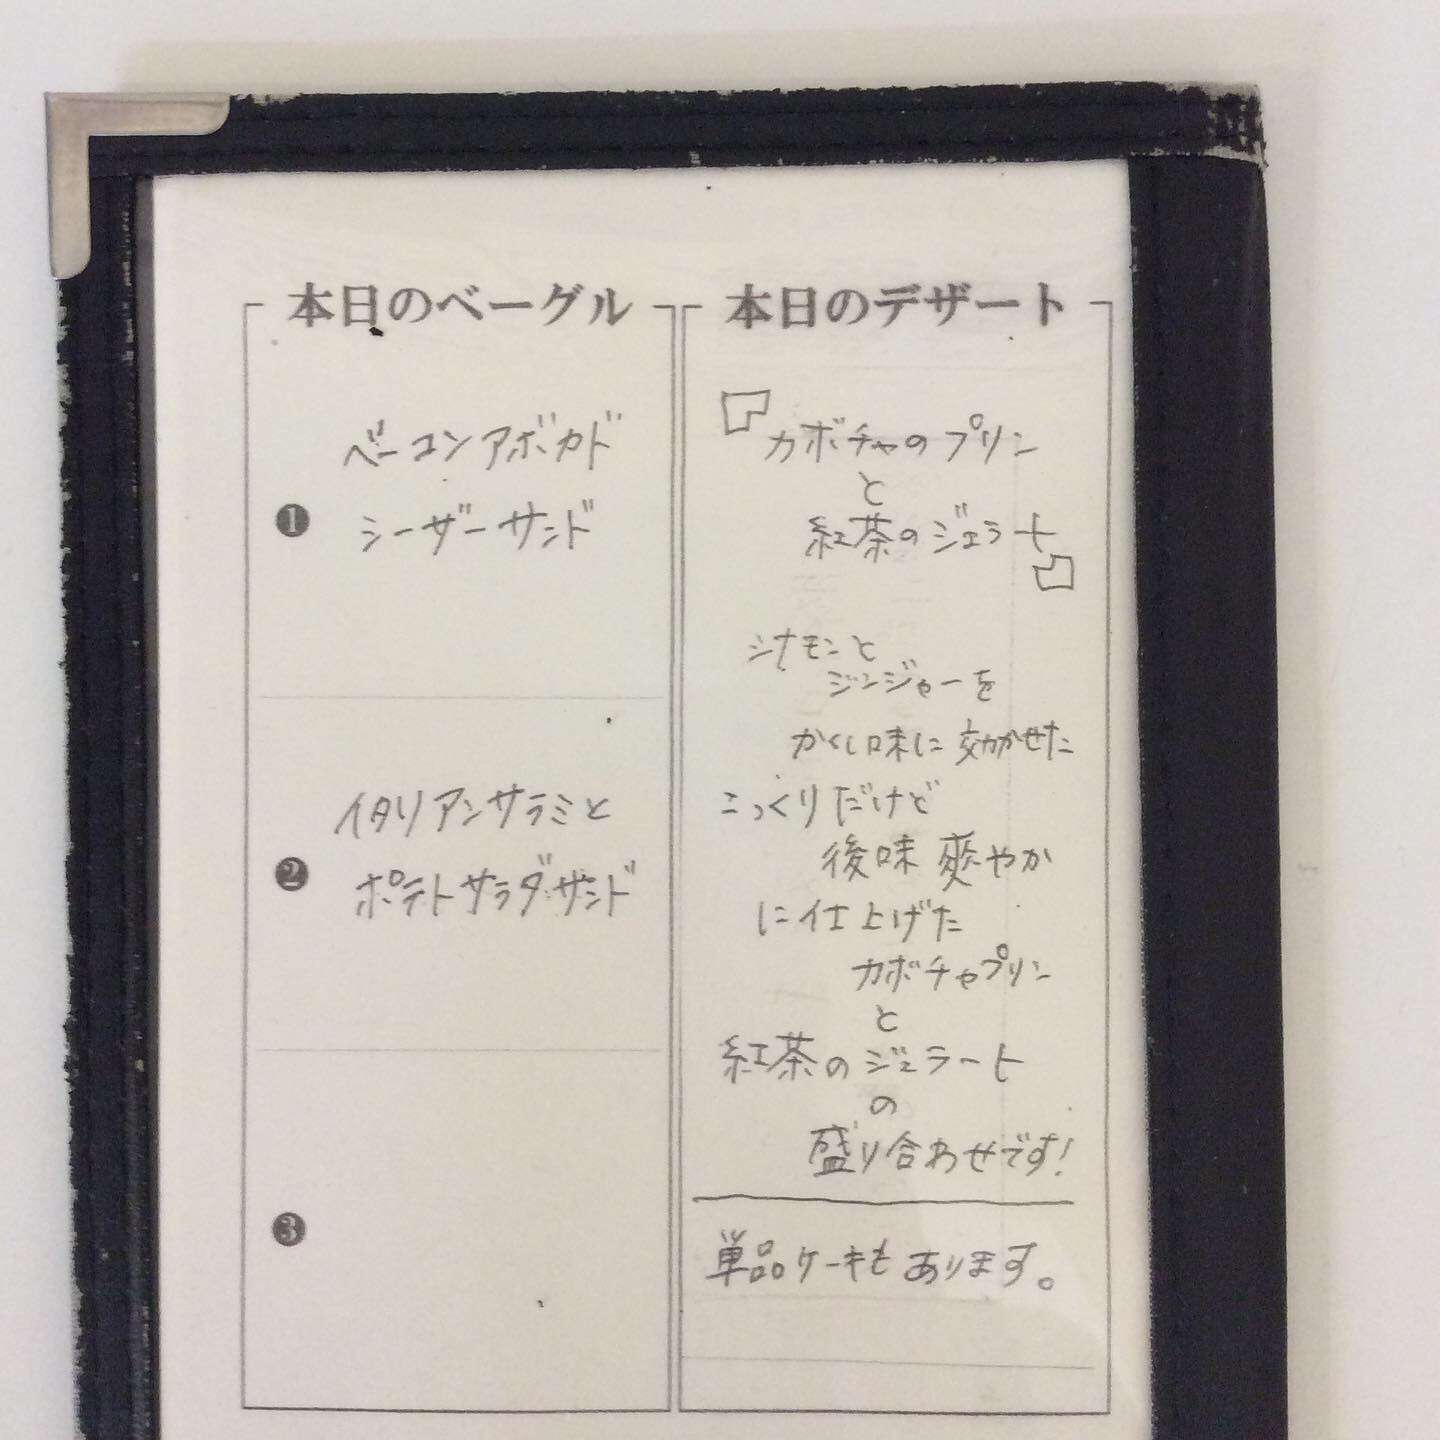 本日のベーグル
❶
ベーコンアボカド
シーザーサンド
❷
イタリアンサラミと
ポテトサラダサンド
❸
本日のデザート
『カボチャのプリン
と
紅茶のジェラート』
シナモンと
ジンジャーを
かくし味に効かせた
こっくりだけど
後味爽やか
に仕上げた
カボチャプリン
と
紅茶のジェラート
の
盛り合わせです!
単品ケーキもあります。